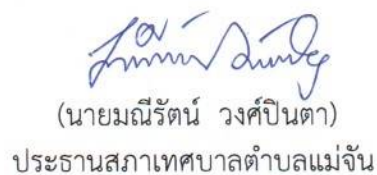 (นายมณีรัตน์ วงศ์ปินตา)
ประธานสภาเทศบาลตำบลแม่จัน